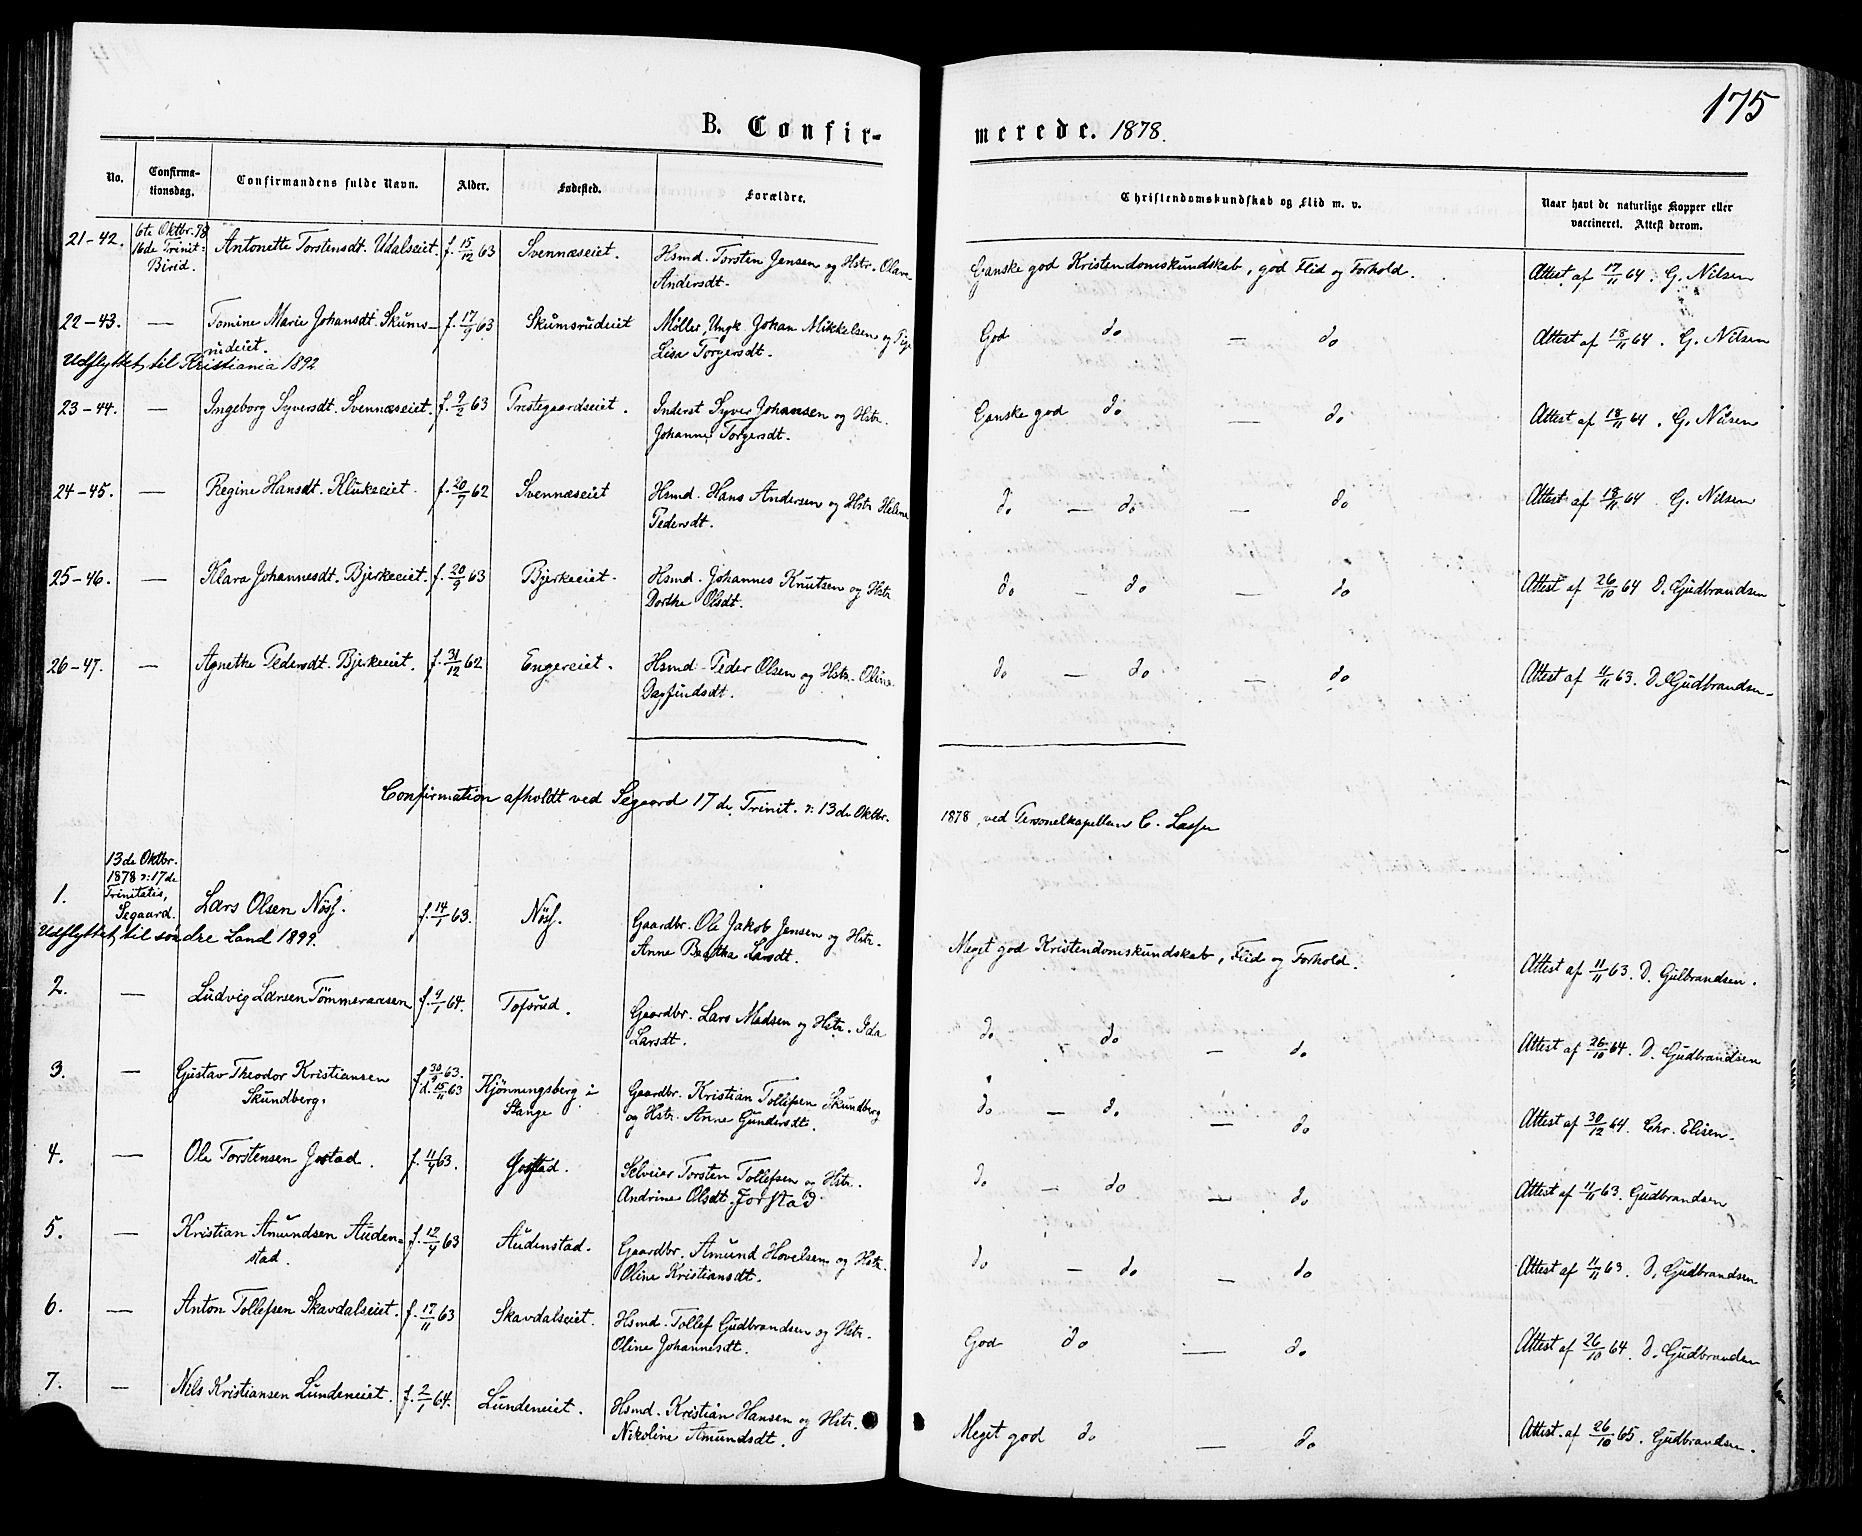 175
B. Confir-
merede. 1878.
No.
Confirma-
tionsdag.
Confirmandens fulde Navn.
Alder.
Fødested.
Forældre.
Christendomskundskab og Flid m. v.
Naar havt de naturlige Kopper eller
vaccineret. Attest derom.
21-42. 6te Oktbr. 78 Antonette Torstensdt. Udalseiet. f. 15/12 63 Svennæseiet. Hsmd. Torsten Jensen og Hstr. Olava Ganske god Kristendomskundskab, god Flid og Forhold. Attest af 17/11 64. G. Nilsen
16de Trinit: Andersdt.
Birid.
22-43. — Tomine Marie Johansdt. Skums- f. 17/9 63 Skumsrudeiet Møller, Ungk. Johan Mikkelsen og Pige God do — do Attest af 18/11 64. G. Nilsen
rudeiet. Lisa Torgersdt.
Udflyttet til Kristiania 1892
23-44. — Ingeborg Syversdt. Svennæseiet. f. 9/2 63 Prestegaardseiet. Inderst Syver Johansen og Hstr. Ganske god do — do Attest af 18/11 64. G. Nilsen
Johanne Torgersdt.
24-45. — Regine Hansdt. Klukeeiet. f. 20/7 62 Svennæseiet Hsmd. Hans Andersen og Hstr Helene do — do — do Attest af 18/11 64. G. Nilsen
Pedersdt.
25-46. — Klara Johannesdt. Bjerkeeiet. f. 20/9 63 Bjerkeeiet. Hsmd. Johannes Knutsen og Hstr do — do — do Attest af 26/10 64 D. Gudbrandsen
Dorthe Olsdt.
26-47. — Agnethe Pedersdt. Bjerkeeiet. f. 31/12 62 Engereiet. Hsmd. Peder Olsen og Hstr. Oline do — do — do Attest af 11/11 63. D. Gudbrandsen
Dagfindsdt.
Confirmation afholdt ved Segaard 17de Trinit. ɔ: 13de Oktbr. 1878, ved Personelkapellan C.
13de Oktbr.
1878 ɔ: 17de
Trinitatis,
Segaard.
1. Lars Olsen Nøss. f. 14/1 63. Nøss. Gaardbr. Ole Jakob Jensen og Hstr. Meget god Kristendomskundskab, Flid og Forhold. Attest af 11/11 63. D. Gulbrandsen.
Anne Bertha Larsdt.
Udflyttet til søndre Land 1899.
2. — Ludvig Larsen Tømmeraasen f. 9/1 64. Tofsrud. Gaardbr. Lars Madsen og Hstr. Ida do do — do Attest af 26/10 64. D. Gudbrandsen
Larsdt.
3. — Gustav Theodor Kristiansen f. 30/9 63. Kjønningsberg i Gaardbr. Kristian Tollefsen Skundberg do — do — do Attest af 30/12 64. Chr. Elisen.
Skundberg. d. 15/11 63 Stange og Hstr. Anne Gundersdt.
4. — Ole Torstensen Jostad. f. 11/4 63. Jostad. Selveier Torsten Tollefsen og Hstr. do — do — do Attest af 11/11 63. Gudbrandsen
Andrine Olsdt. Jorstad
5. — Kristian Amundsen Auden- f. 12/4 63 Audenstad. Gaardbr. Amund Hovelsen og Hstr. do — do — do Attest af 11/11 63. D. Gudbrandsen
stad. Oline Kristiansdt.
6. — Anton Tollefsen Skavdalseiet. f. 17/11 63 Skavdalseiet. Hsmd. Tollef Gudbrandsen og Hstr. God do — do Attest af 26/10 64. D. Gudbrandsen
Oline Johannesdt.
7. — Nils Kristiansen Lundeneiet. f. 2/1 64. Lundeneiet. Hsmd. Kristian Hansen og Hstr. Meget god do — do Attest. af 26/10 65. Gudbrandsen.
Nikoline Amundsdt.